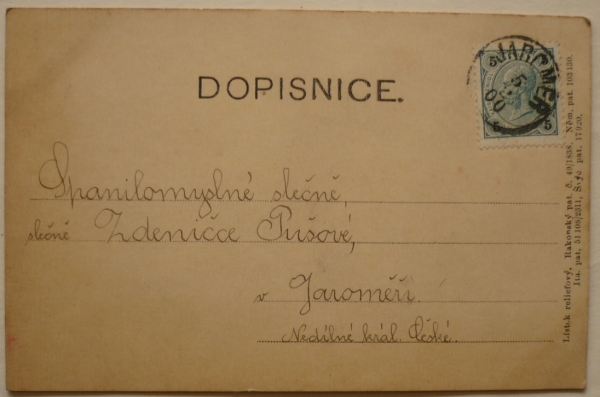 DOPISNICE.
JAROMĚŘ
5
00
5
Spanilomyslné slečně,
slečně Zdeničce Pušové,
v Jaroměři.
Nedílné král. České.
Lístek reliefový, Rakouský pat. č. 49/1838, Něm. pat. 103130,
Ita. pat. 51108/2311, Šifc pat. 17920.